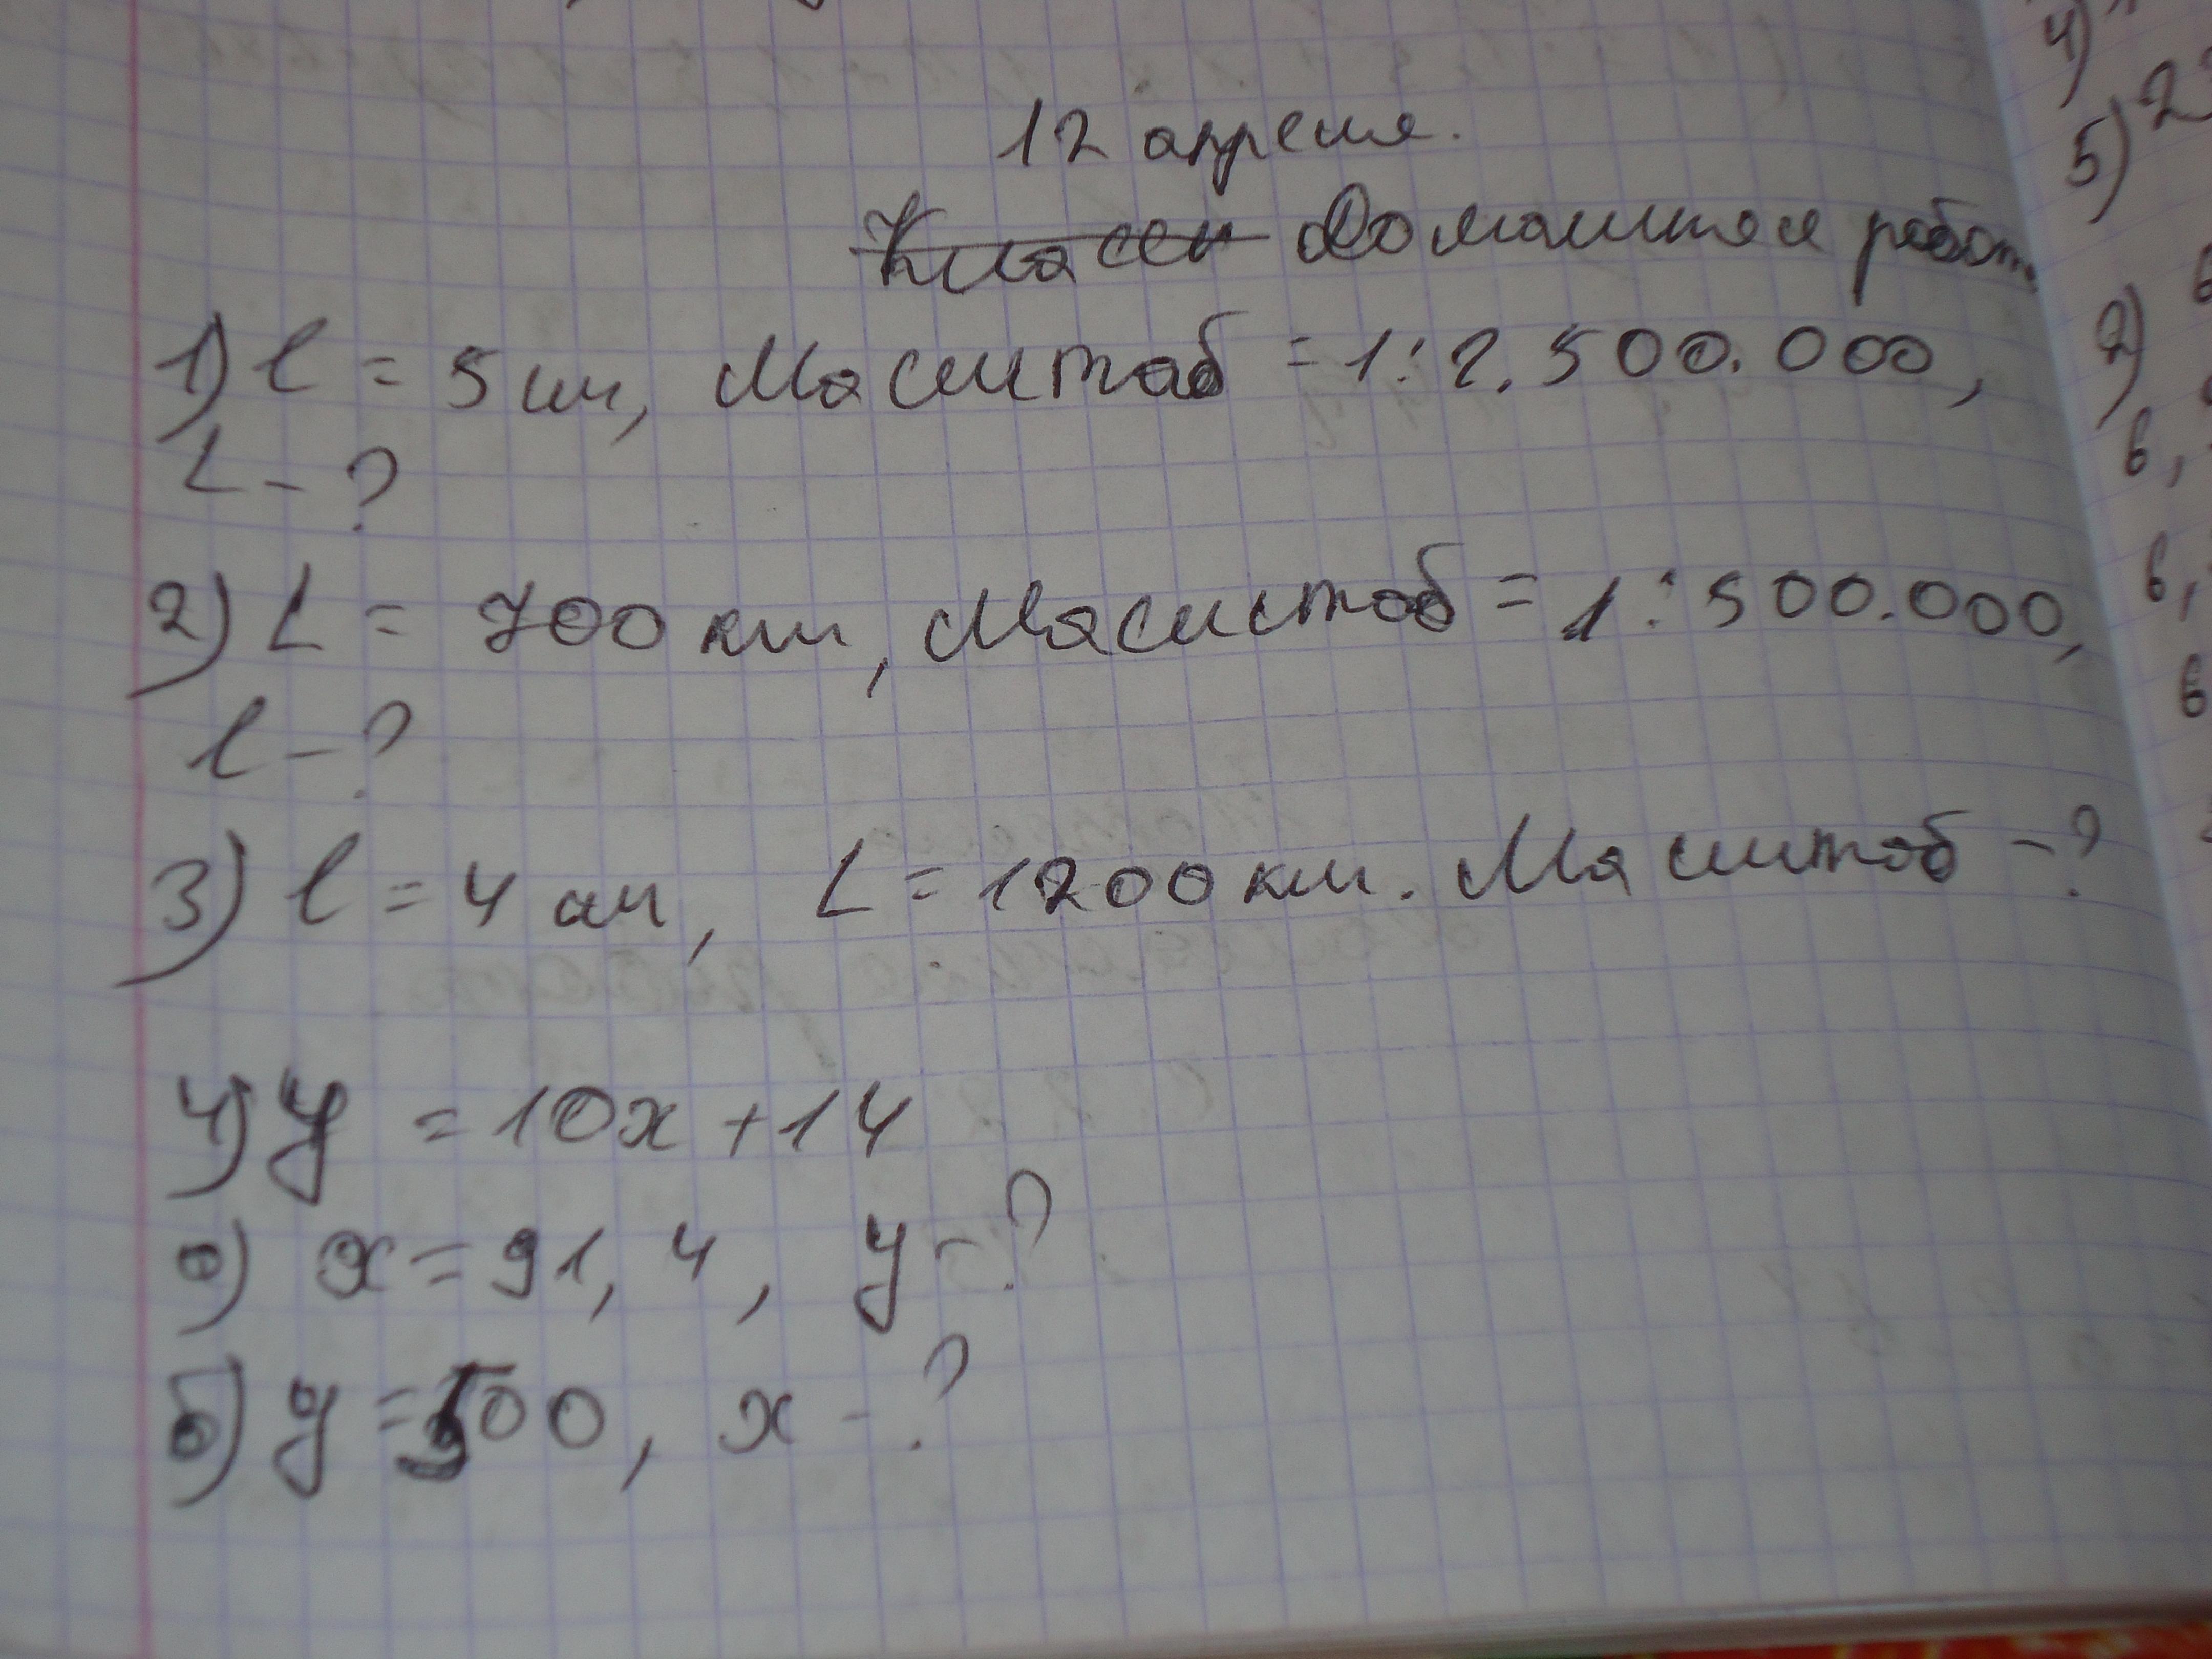 12 апреля.
Классн Домашняя работ
1) l = 5 см, Масштаб = 1:2.500.000,
L - ?
2) L = 700 км, Масштаб = 1:500.000,
l - ?
3) l = 4 см, L = 1200 км. Масштаб - ?
4) y = 10x + 14
а) x = 91,4, y - ?
б) y = 500, x - ?
4)
5) 2
2)
6,
6,
6